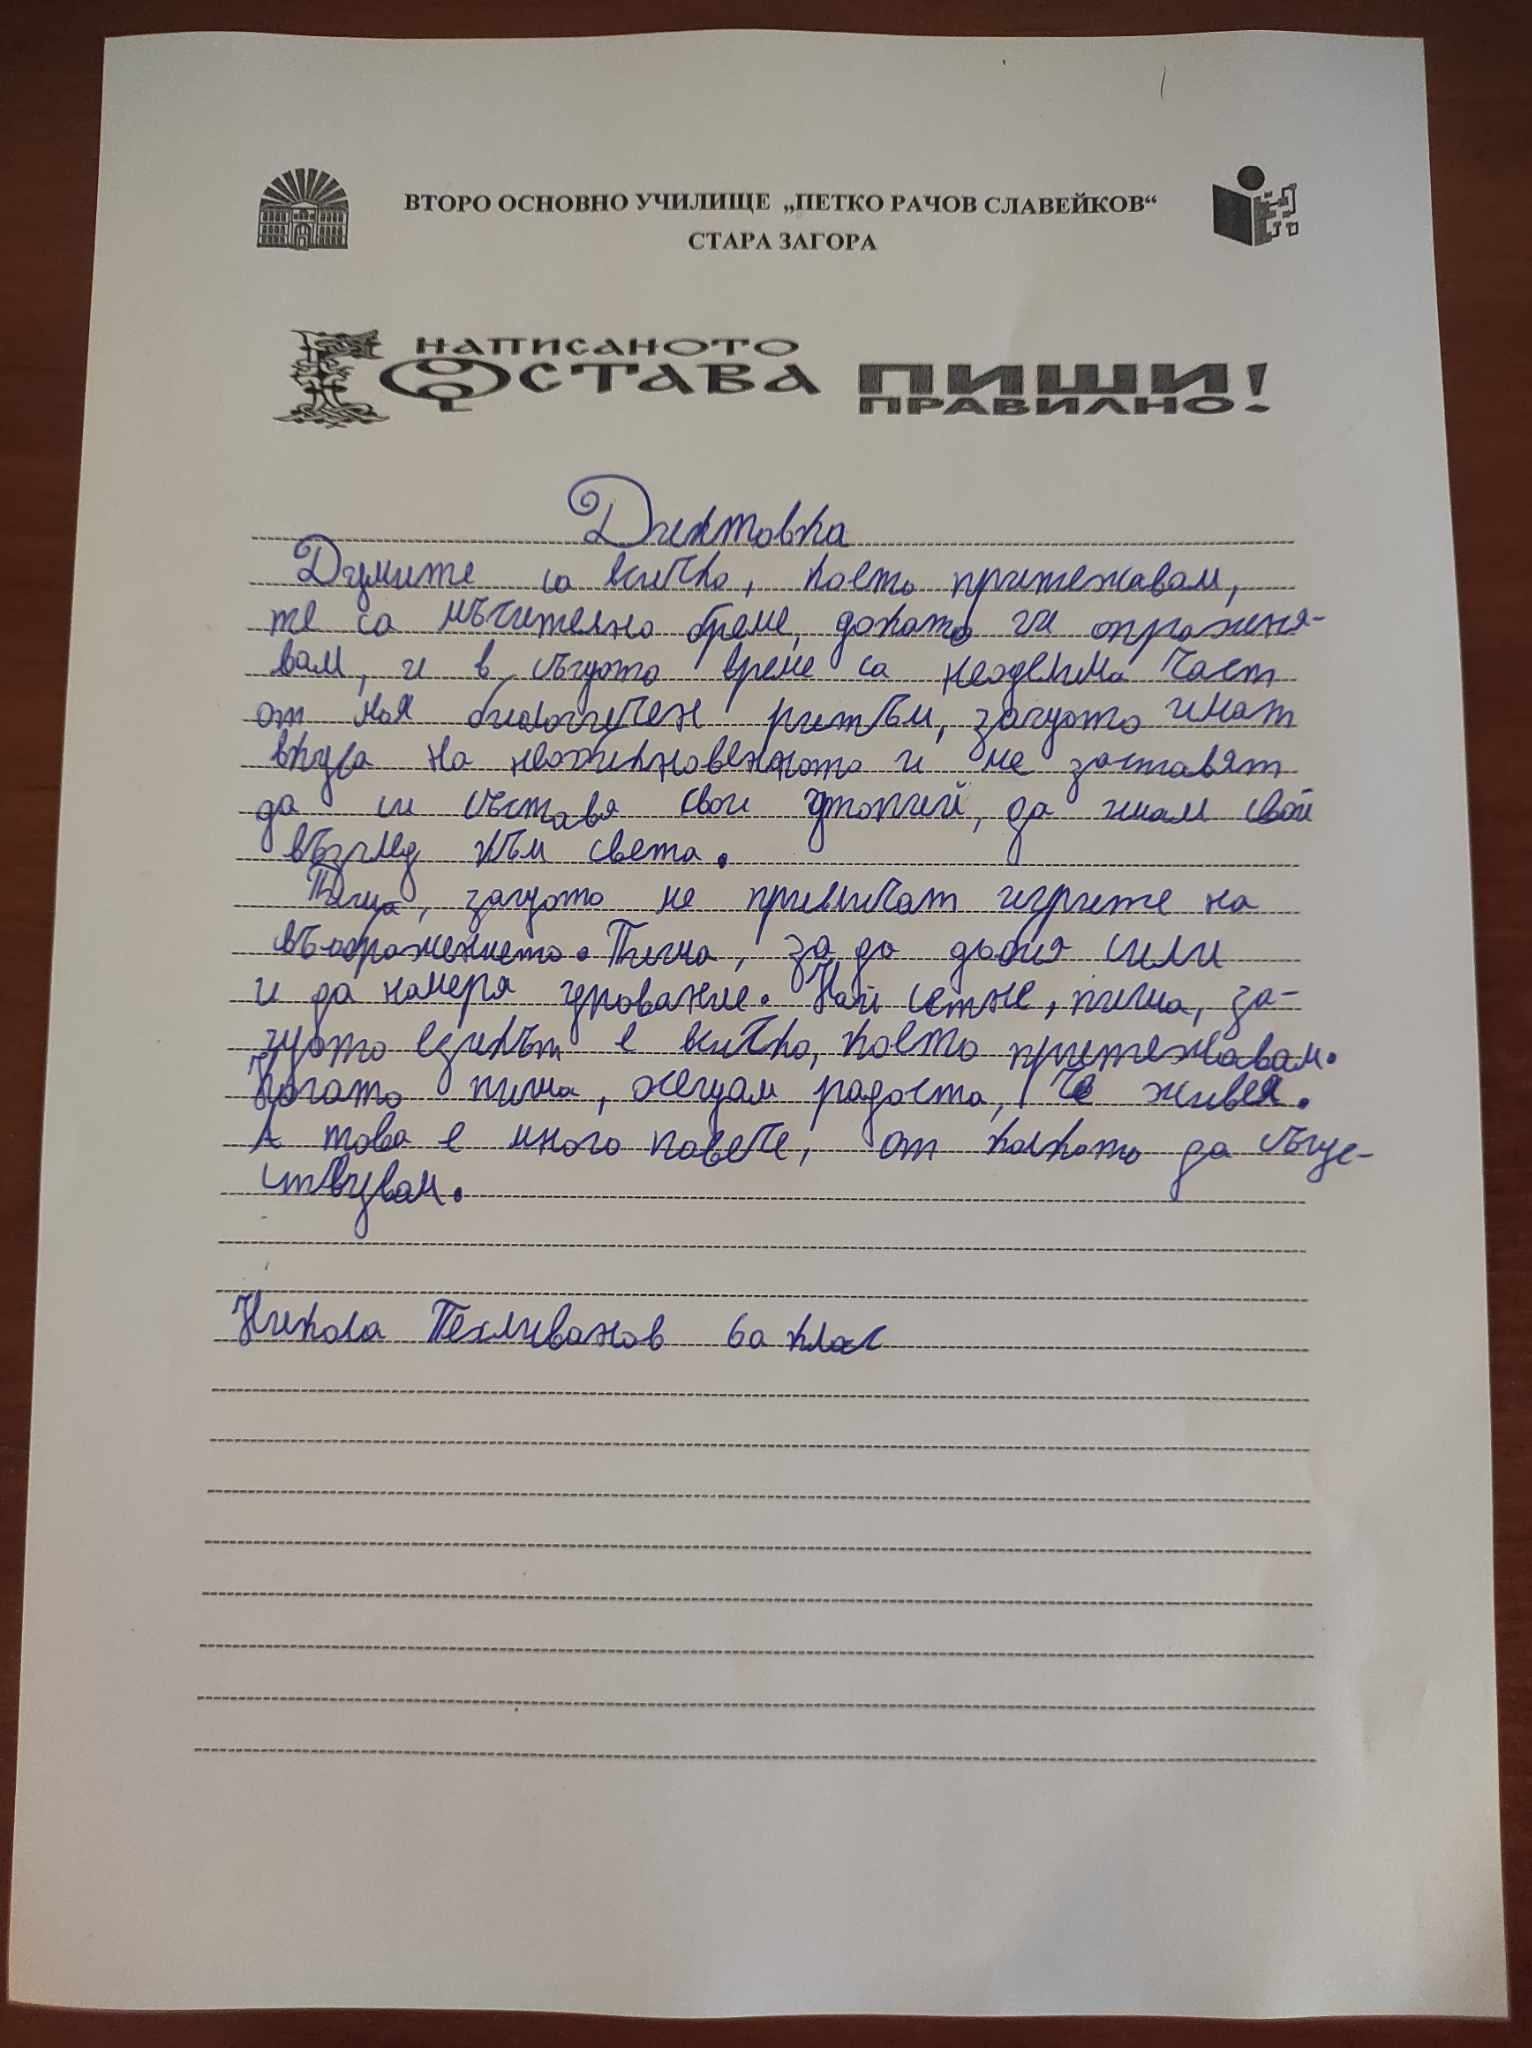 ВТОРО ОСНОВНО УЧИЛИЩЕ „ПЕТКО РАЧОВ СЛАВЕЙКОВ“
СТАРА ЗАГОРА
НАПИСАНОТО
ОСТАВА
ПИШИ
ПРАВИЛНО!
Диктовка
Думите са всичко, което притежавам,
те са мъчително бреме, докато ги опражня-
вам, и в същото време са неоделима част
от моя биологичен ритъм, защото имат
вкуса на необикновенното и ме заставят
да си съставя свои утопий, да имам свой
възглед към света.
Пиша, защото ме привличат игрите на
въображението. Пиша, за да добия сили
и да намеря упование. Най сетне, пиша, за-
щото езикът е всичко, което притежавам.
Когато пиша, усещам радоста, че живея.
А това е много повече, от колкото да съще-
ствувам.
Никола Пехливанов 6а клас